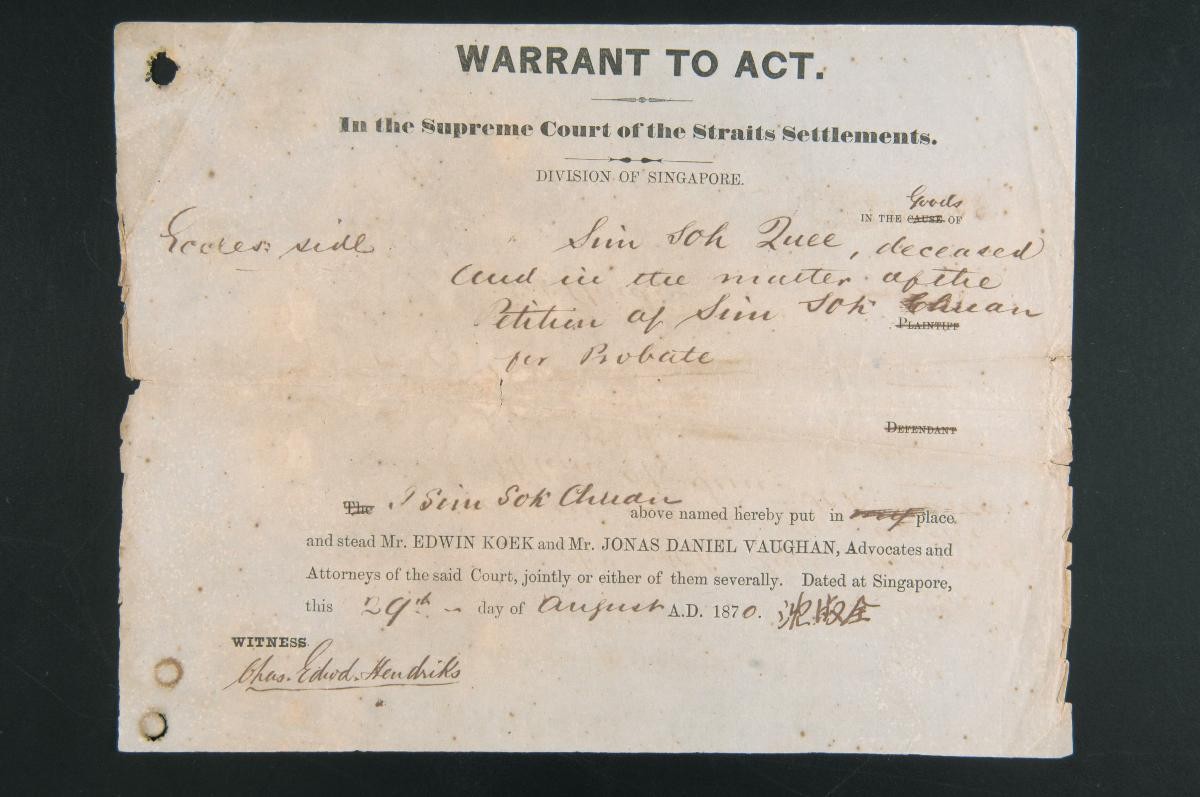 WARRANT TO ACT.
In the Supreme Court of the Straits Settlements.
DIVISION OF SINGAPORE.
Goods
IN THE CAUSE OF
Eccles: side
Sim Soh Quee, deceased
And in the matter of the
Petition of Sim Sok Chuan
PLAINTIFF
for Probate
DEFENDANT
The I Sim Sok Chuan
above named hereby put in my place
and stead Mr. EDWIN KOEK and Mr. JONAS DANIEL VAUGHAN, Advocates and
Attorneys of the said Court, jointly or either of them severally. Dated at Singapore,
this 29th day of August A.D. 1870. 沈淑全
WITNESS
Chas. Edwd. Hendriks